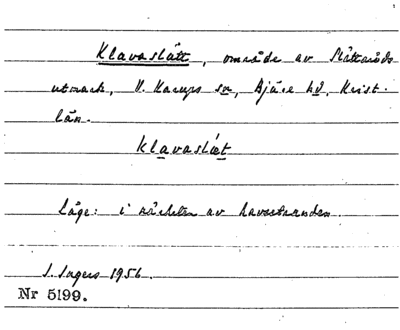 Klavaslätt, område av Slättaröds
utmark, V. Karups sn, Bjäre hd, Krist.
län.
Klavaslæt
Läge: i närheten av havsstranden.
S. Ingers 1956.
Nr 5199.